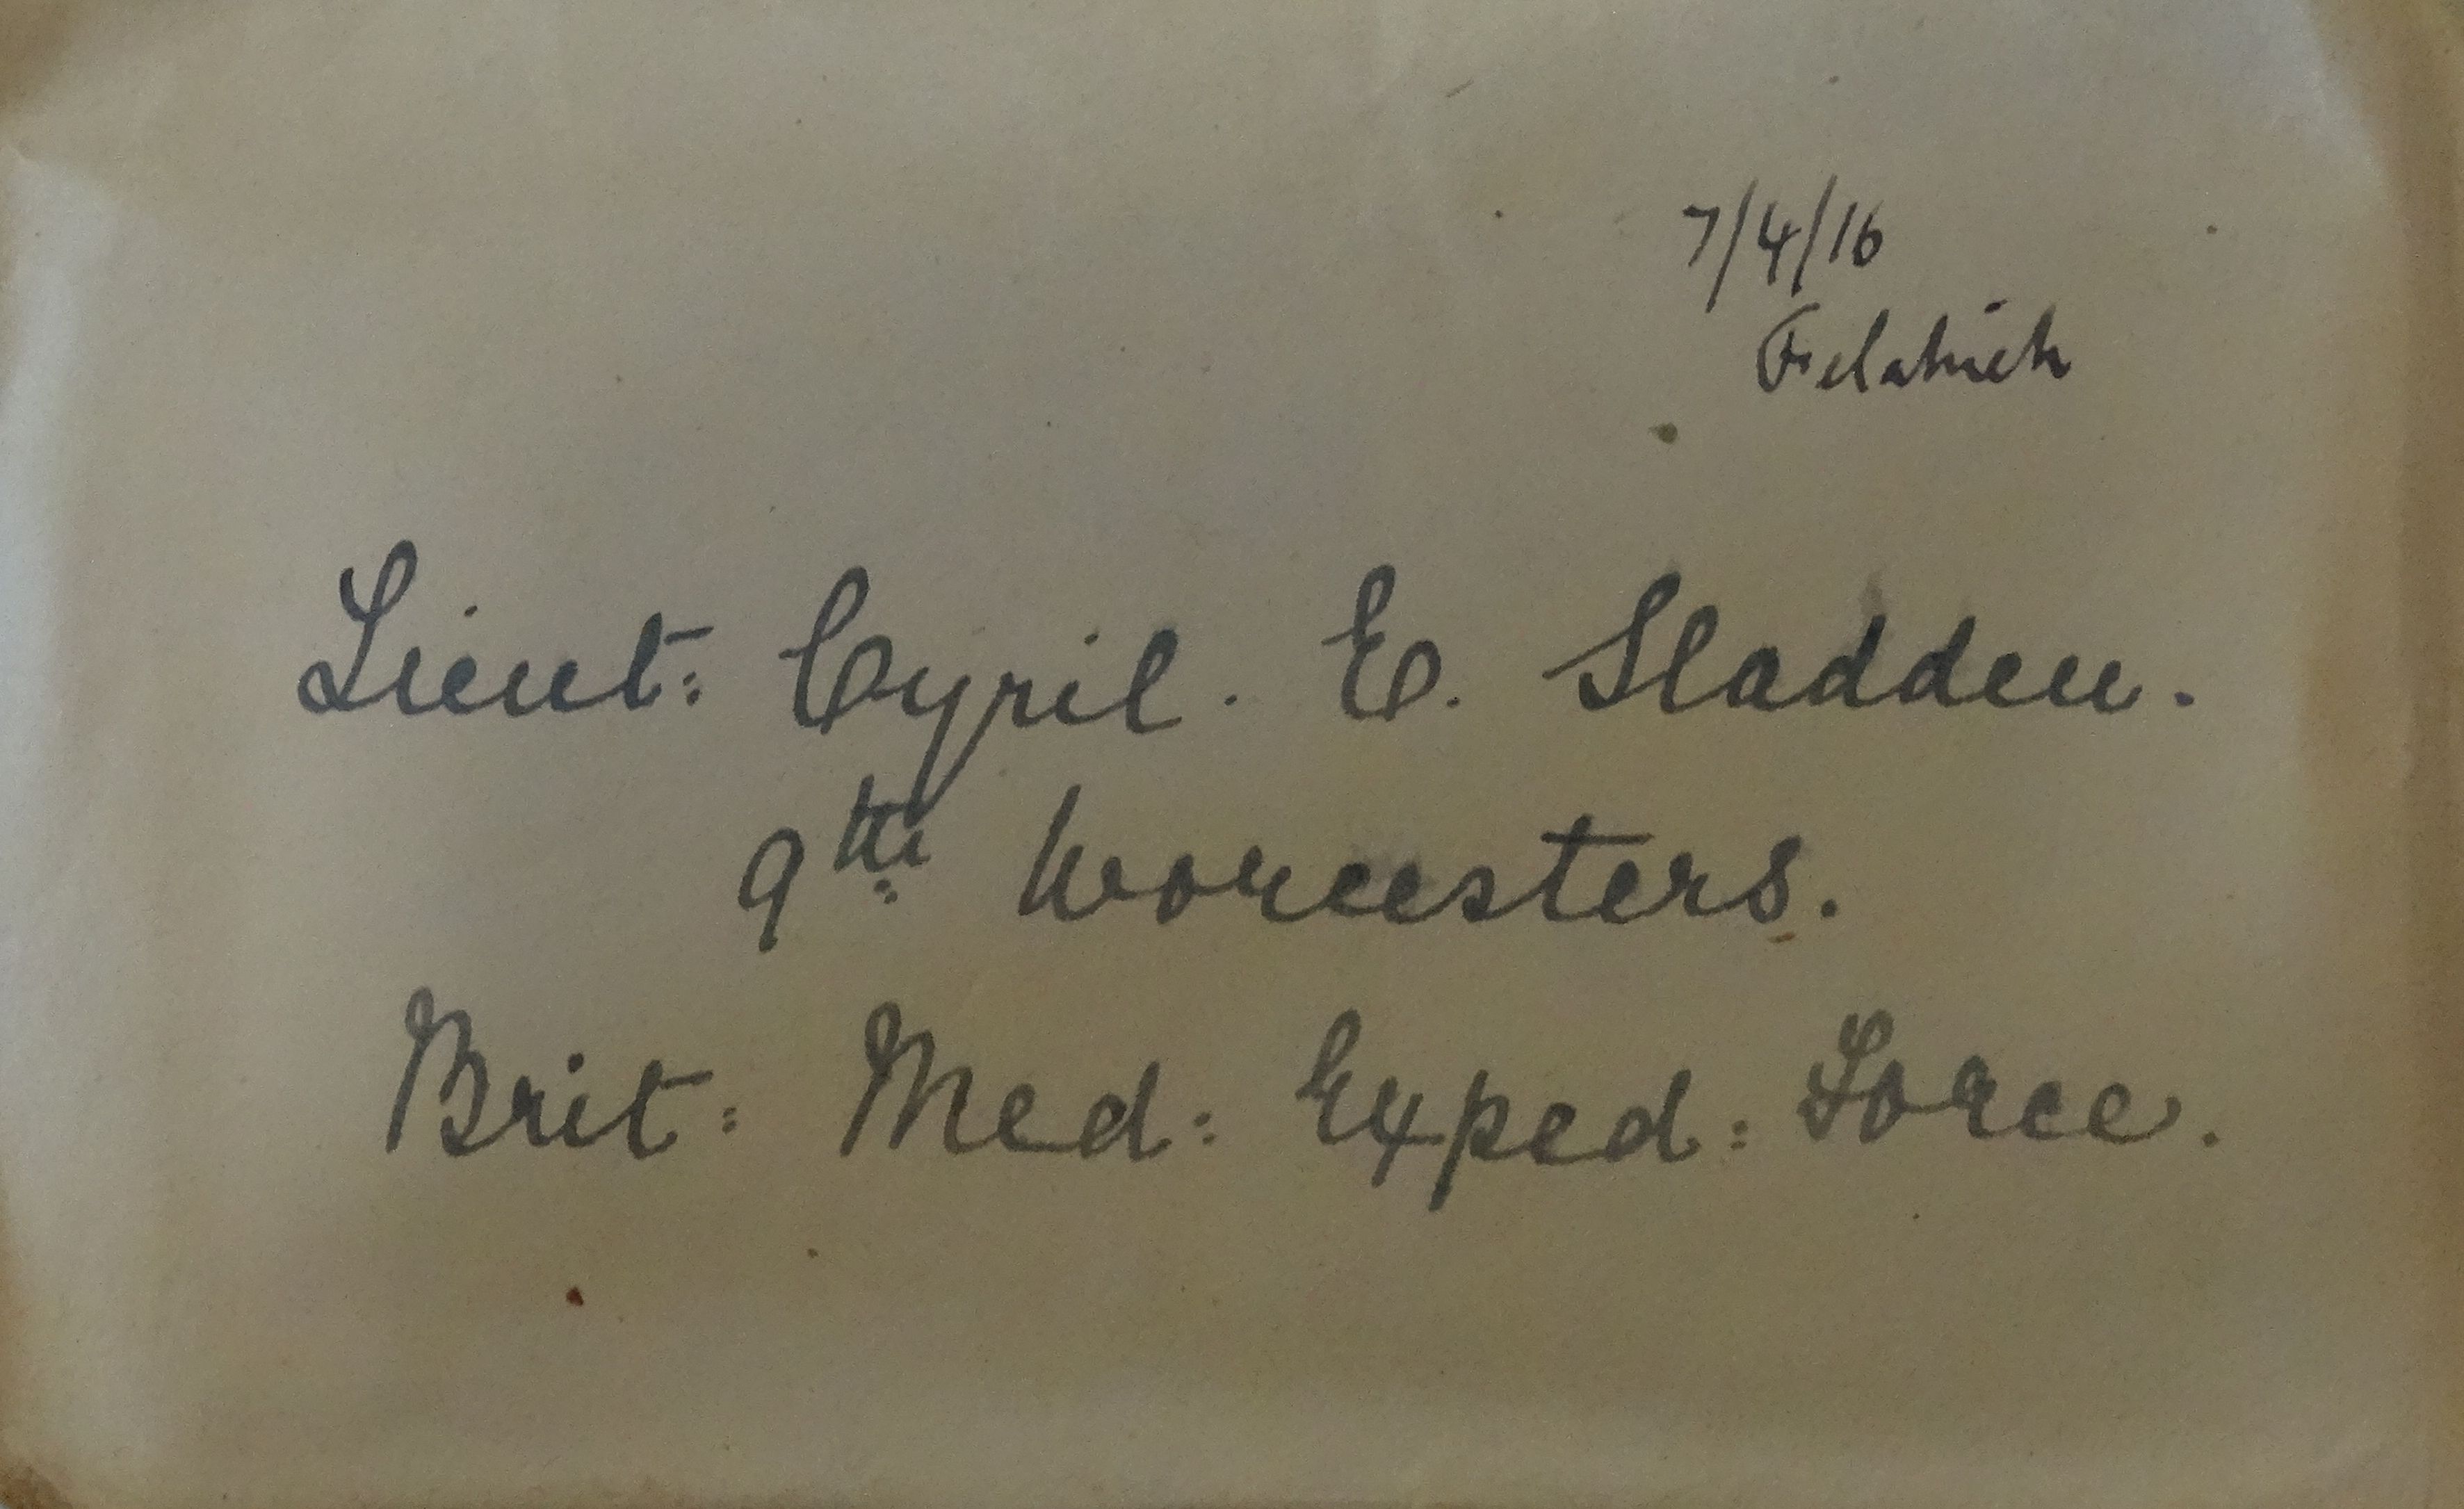 7/4/16
Felahieh
Lieut: Cyril. E. Sladden.
9th: Worcesters.
Brit: Med: Exped: Force.